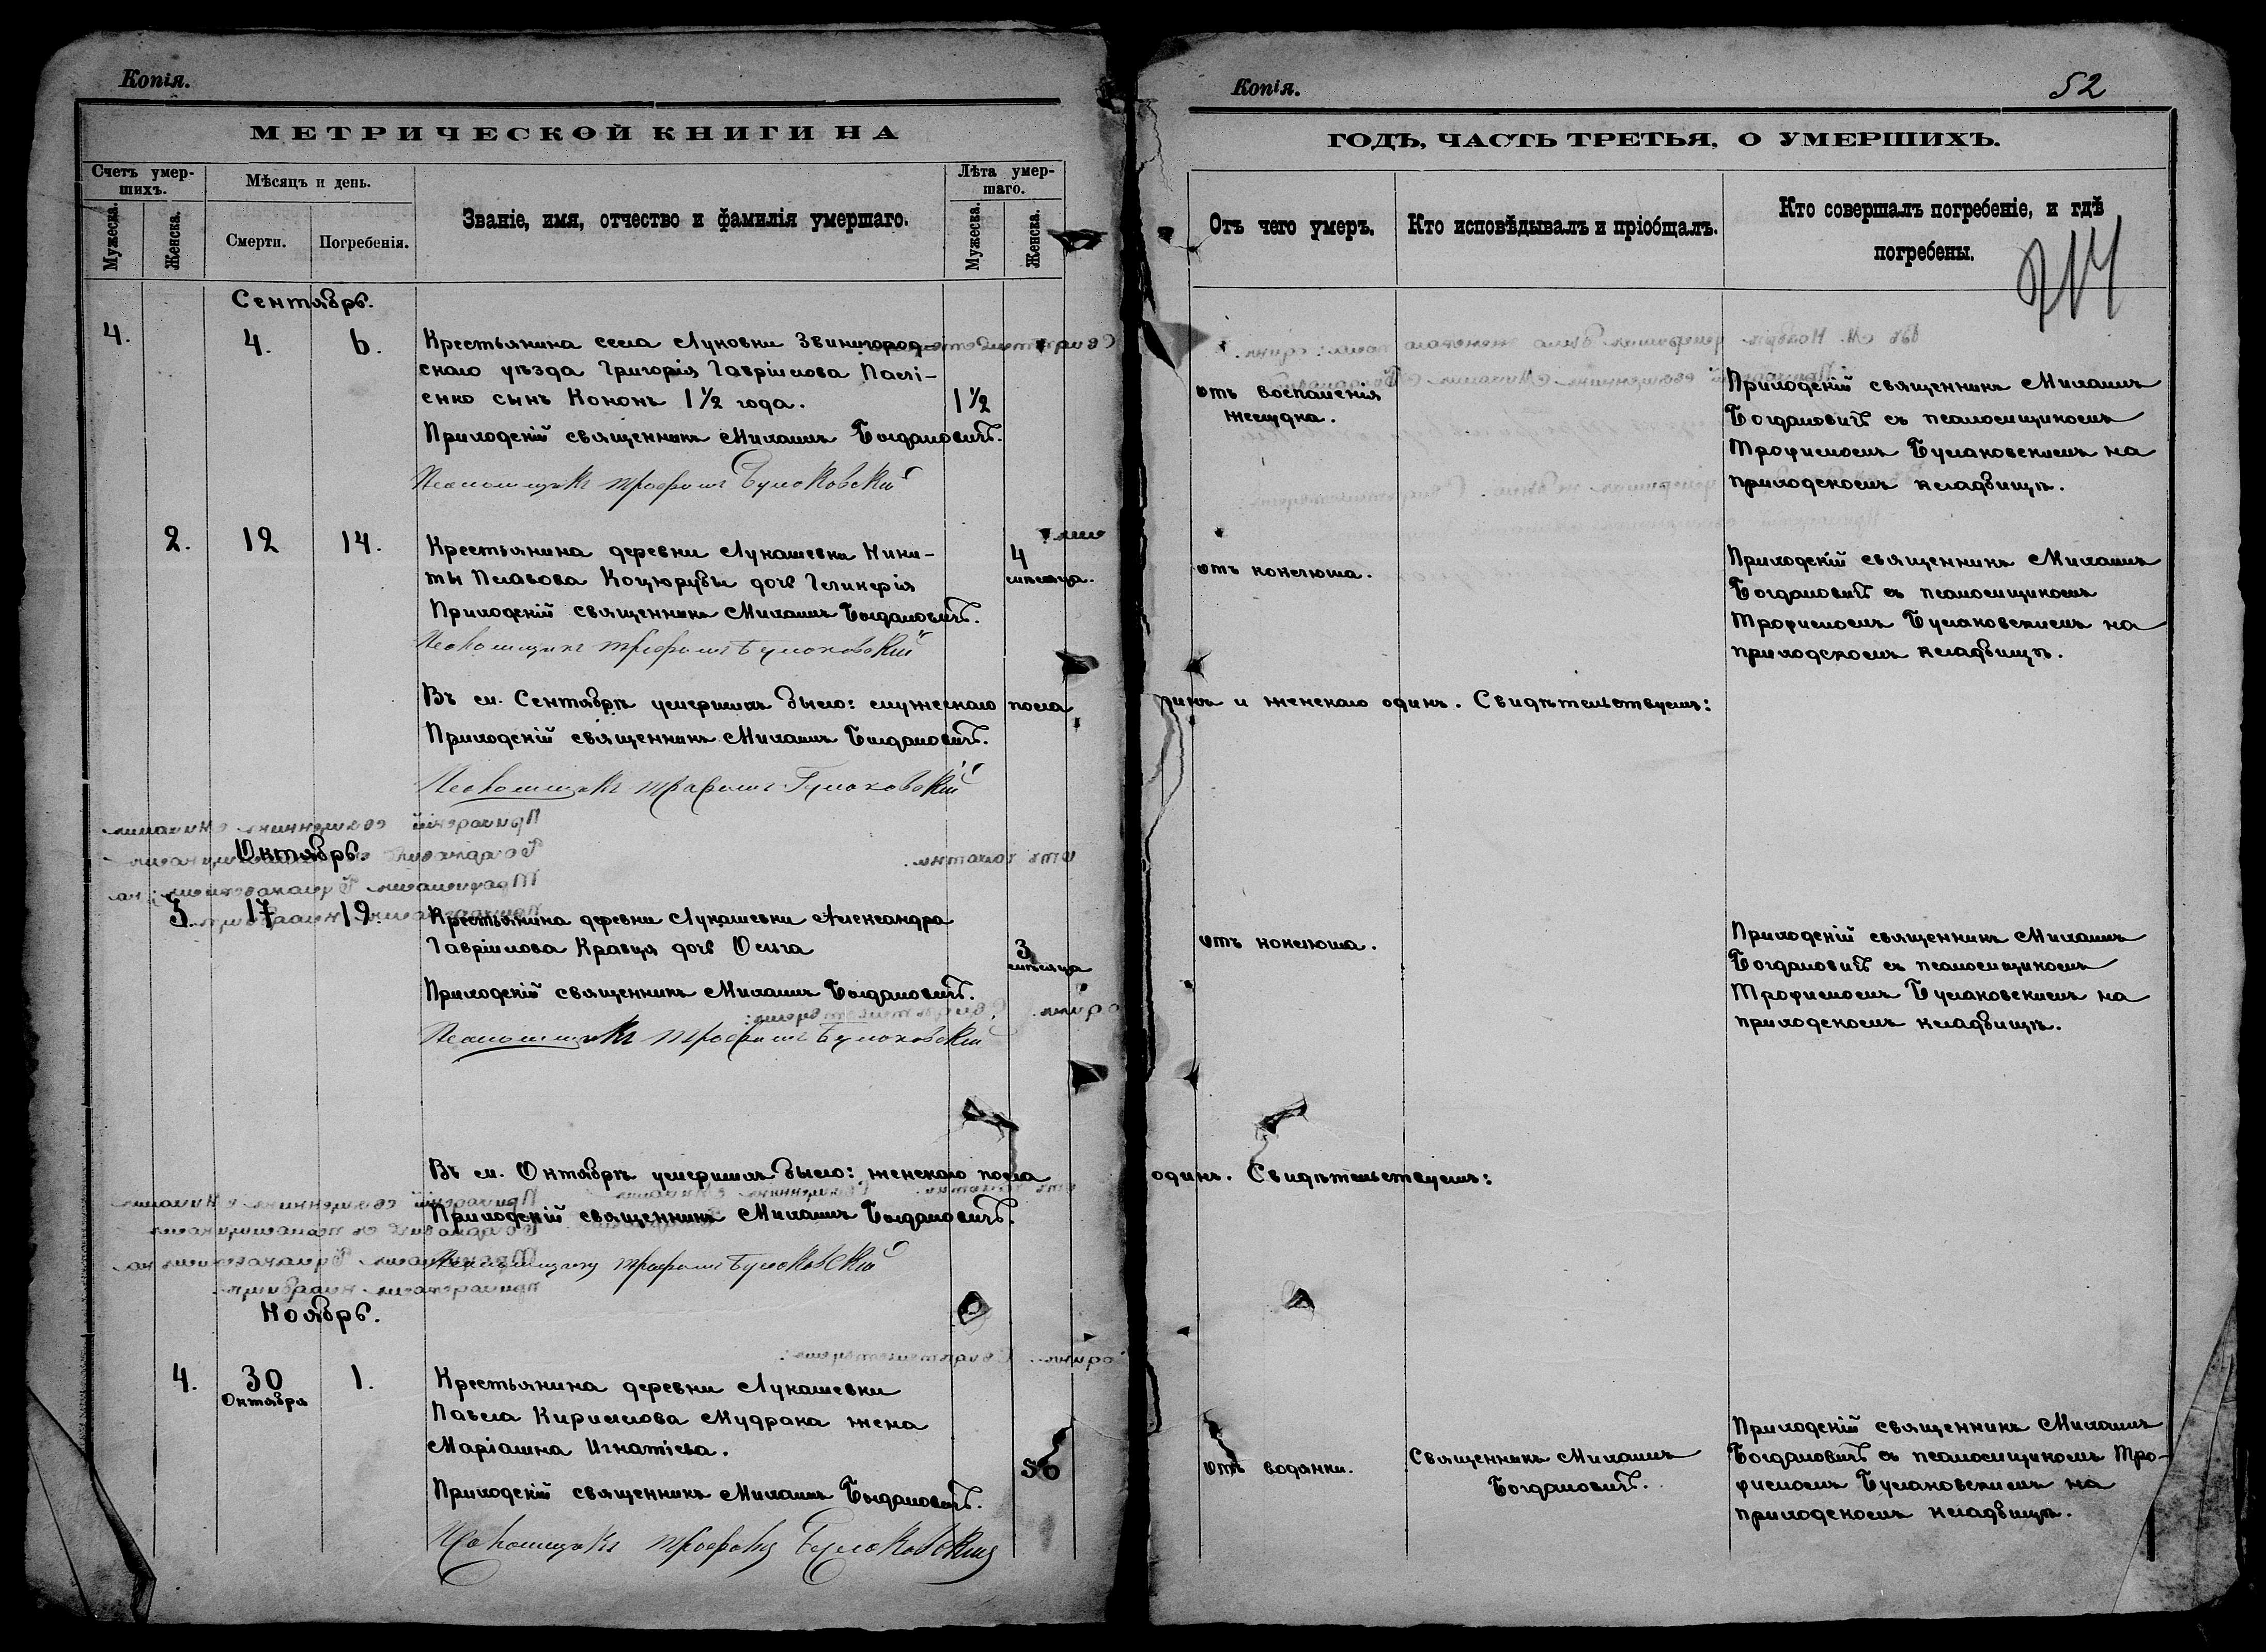 Копія.
МЕТРИЧЕСКОЙ КНИГИ НА
Счетъ умер-
шихъ.
Мужеска.
Женска.
Мѣсяцъ и день.
Смерти.
Погребенія.
Званіе, имя, отчество и фамилія умершаго.
Лѣта умер-
шаго.
Мужеска.
Женска.
Сентябрь.
4.
4.
6.
Крестьянина села Луковки Звинигород-
скаго уѣзда Григорія Гавріилова Паслі-
енко сынъ Кононъ 1½ года.
1½
Приходскій священникъ Михаилъ Богдановичъ.
Псаломщикъ Трофимъ Булаковскій
2.
12
14.
Крестьянина деревни Лукашевки Ники-
ты Павлова Коцюрубы дочь Гликерія
4
мѣсяца.
Приходскій священникъ Михаилъ Богдановичъ.
Псаломщикъ Трофимъ Булаковскій
Въ м. Сентябрѣ умершихъ было: мужескаго пола
Приходскій священникъ Михаилъ Богдановичъ.
Псаломщикъ Трофимъ Булаковскій
Октябрь.
3.
17
19.
Крестьянина деревни Лукашевки Александра
Гавріилова Кравця дочь Ольга
3
мѣсяца
Приходскій священникъ Михаилъ Богдановичъ.
Псаломщикъ Трофимъ Булаковскій
Въ м. Октябрѣ умершихъ было: женскаго пола
Приходскій священникъ Михаилъ Богдановичъ.
Трофимъ Булаковскій
Ноябрь.
4.
30
Октября
1.
Крестьянина деревни Лукашевки
Павла Кириллова Мудрака жена
Маріанна Игнатіева.
Приходскій священникъ Михаилъ Богдановичъ.
Псаломщикъ Трофимъ Булаковскій
Копія.
52
ГОДЪ, ЧАСТЬ ТРЕТЬЯ, О УМЕРШИХЪ.
Отъ чего умеръ.
Кто исповѣдывалъ и пріобщалъ.
Кто совершалъ погребеніе, и гдѣ
погребены.
отъ воспаленія
желудка.
Приходскій священникъ Михаилъ
Богдановичъ съ псаломщикомъ
Трофимомъ Булаковскимъ на
приходскомъ кладбищѣ.
отъ коклюша.
Приходскій священникъ Михаилъ
Богдановичъ съ псаломщикомъ
Трофимомъ Булаковскимъ на
приходскомъ кладбищѣ.
и женскаго одинъ. Свидѣтельствуемъ:
отъ коклюша.
Приходскій священникъ Михаилъ
Богдановичъ съ псаломщикомъ
Трофимомъ Булаковскимъ на
приходскомъ кладбищѣ.
одинъ. Свидѣтельствуемъ:
отъ водянки.
Священникъ Михаилъ
Богдановичъ.
Приходскій священникъ Михаилъ
Богдановичъ съ псаломщикомъ Тро-
фимомъ Булаковскимъ на
приходскомъ кладбищѣ.